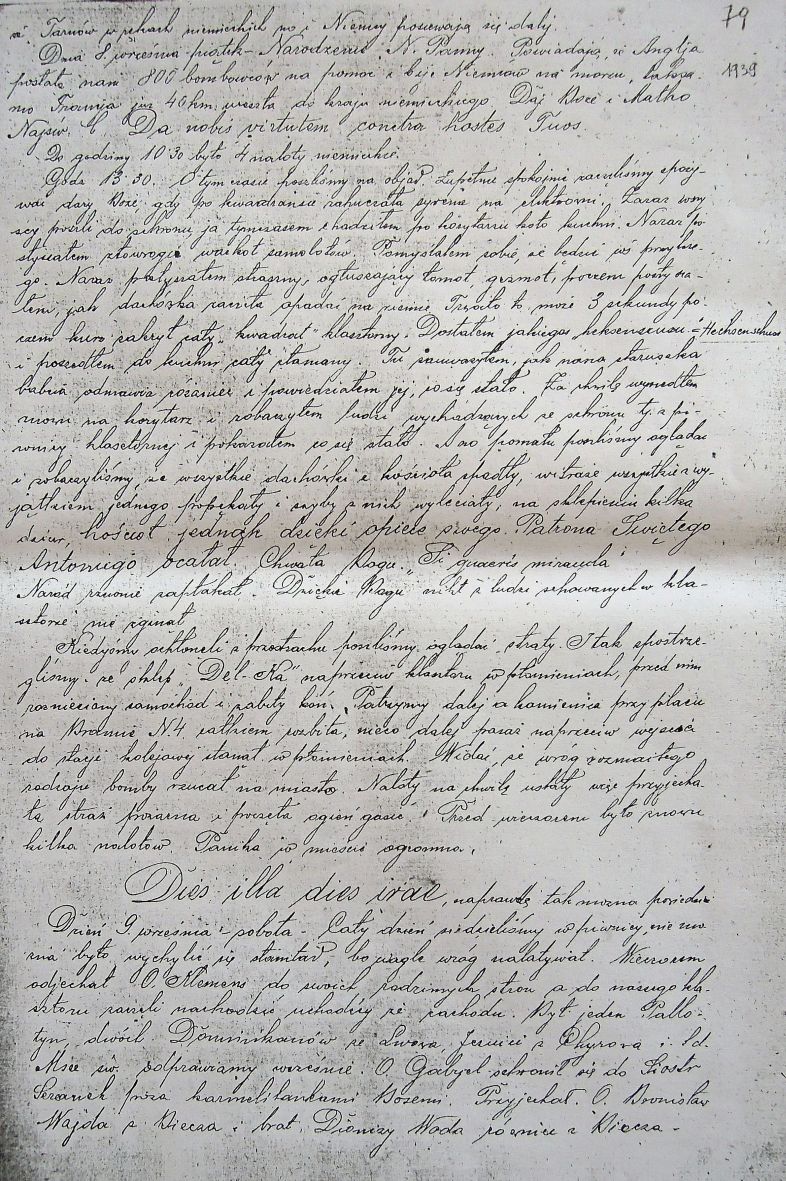 79
1939
że Tarnów w rękach niemieckich no i Niemcy posuwają się dalej.
Dnia 8. września piątek - Narodzenie N. Panny. Powiadają, że Anglja
posłała nam 800 bombowców na pomoc i bije Niemców na morzu, tak sa-
mo Francja już 40 km. weszła do kraju niemieckiego. Daj Boże i Matko
Najśw. Da nobis virtutem contra hostes Tuos.
Do godziny 10.30 było 4 naloty niemieckie.
Godz 13.30. O tym czasie poszliśmy na objad. Zupełnie spokojnie zaczęliśmy spoży-
wać dary Boże gdy po kwadransie zahuczała syrena na elektrowni. Zaraz wszy
scy poszli do schronu ja tymczasem chodziłem po korytarzu koło kuchni. Naraz po
słyszałem złowrogi warkot samolotów. Pomyślałem sobie, że będzie coś przykre-
go. Naraz posłyszałem straszny, ogłuszający łomot, grzmot, poczem posłysza-
łem, jak dachówka zaczęła opadać na ziemię. Trwało to może 3 sekundy po-
czem kurz zakrył cały "kwadrat" klasztorny. Dostałem jakiegoś heksenszusu = Hechsenschuss
i poszedłem do kuchni cały złamany. Tu zauważyłem, jak nasza staruszka
babcia odmawia różaniec i powiedziałem jej, co się stało. Za chwilę wyszedłem
znowu na korytarz i zobaczyłem ludzi wychodzących ze schronu tj. z pi-
wnicy klasztornej i pokazałem co się stało. A no pomału poszliśmy oglądać
i zobaczyliśmy, że wszystkie dachówki z kościoła spadły, witraże wszystkie z wy-
jątkiem jednego popękały i szyby z nich wyleciały, na sklepieniu kilka
dziur, kościół jednak dzięki opiece swego Patrona Świętego
Antoniego ocalał. Chwała Bogu. "Si quaeris miracula"
Naród rzewnie zapłakał. Dzięki Bogu nikt z ludzi schowanych w kla-
sztorze nie zginął
Kiedyśmy ochłonęli z przestrachu poszliśmy oglądać straty. I tak spostrze-
gliśmy że sklep "Del-Ka" naprzeciw klasztoru w płomieniach, przed nim
rozniesiony samochód i zabity koń. Patrzymy dalej a kamienica przy placu
na Bramie N. 4 całkiem rozbita, nieco dalej pasaż naprzeciw wejścia
do stacji kolejowej stanął w płomieniach. Widać, że wróg rozmaitego
rodzaju bomby rzucał na miasto. Naloty na chwilę ustały więc przyjecha-
ła straż pożarna i poczęła ogień gasić. Przed wieczorem było znowu
kilka nalotów. Panika w mieście ogromna.
Dies illa dies irae, naprawdę tak można powiedzieć
Dzień 9. września - sobota - Cały dzień siedzieliśmy w piwnicy, nie mo
żna było wychylić się stamtąd, bo ciągle wróg nalatywał. Wieczorem
odjechał O. Klemens do swoich rodzinnych stron a do naszego kla-
sztoru zaczęli nachodzić uchodźcy ze zachodu. Był jeden Pallo-
tyn, dwóch Dominikanów ze Lwowa, Jezuici z Chyrowa i t.d.
Msze św. odprawiamy wcześnie. O. Gabryel schronił się do Sióstr
poza karmelitankami bosemi. Przyjechał O. Bronisław
Wajda z Biecza i brat Dionizy Woda również z Biecza -